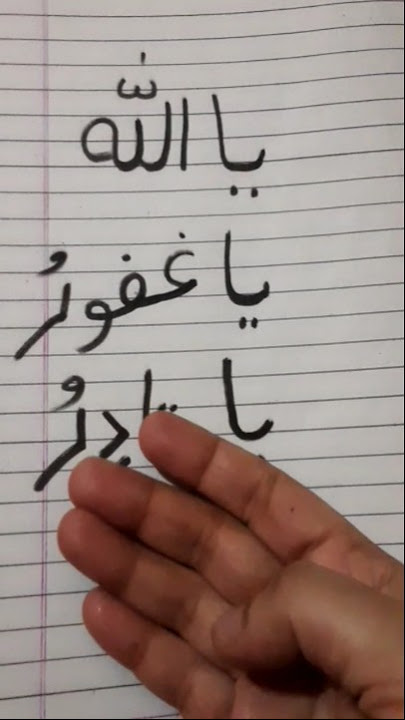 يا اللّٰه
يا غفورُ
يا